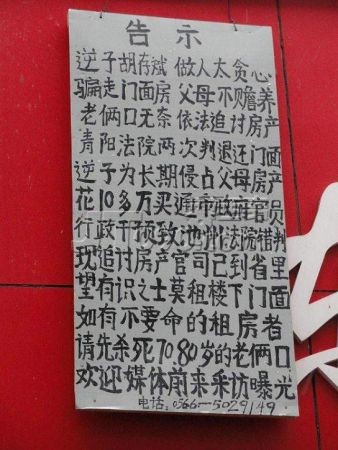 告示
逆子胡存斌 做人太贪心
骗走门面房 父母不赡养
老俩口无奈 依法追讨房产
青阳法院两次判退还门面
逆子为长期侵占父母房产
花10多万买通市政府官员
行政干预致池州法院错判
现追讨房产官司已到省里
望有识之士莫租楼下门面
如有不要命的租房者
请先杀死70.80岁的老俩口
欢迎媒体前来采访曝光
电话:0566-5029149